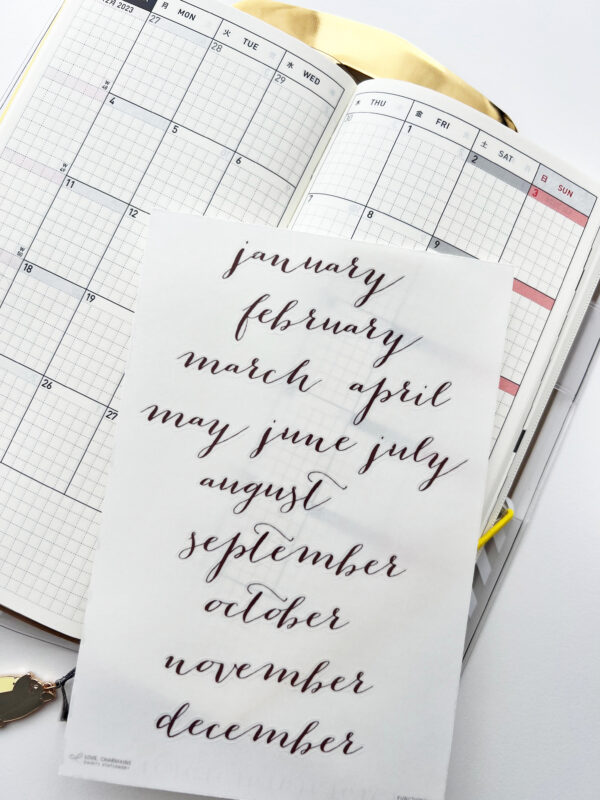 12月 2023
月 MON
火 TUE
水 WED
木 THU
金 FRI
土 SAT
日 SUN
27
28
29
30
1
2
3
4
5
6
7
8
9
11
12
18
19
26
27
january
february
march april
may june july
august
september
october
november
december
LOVE, CHARMAINE